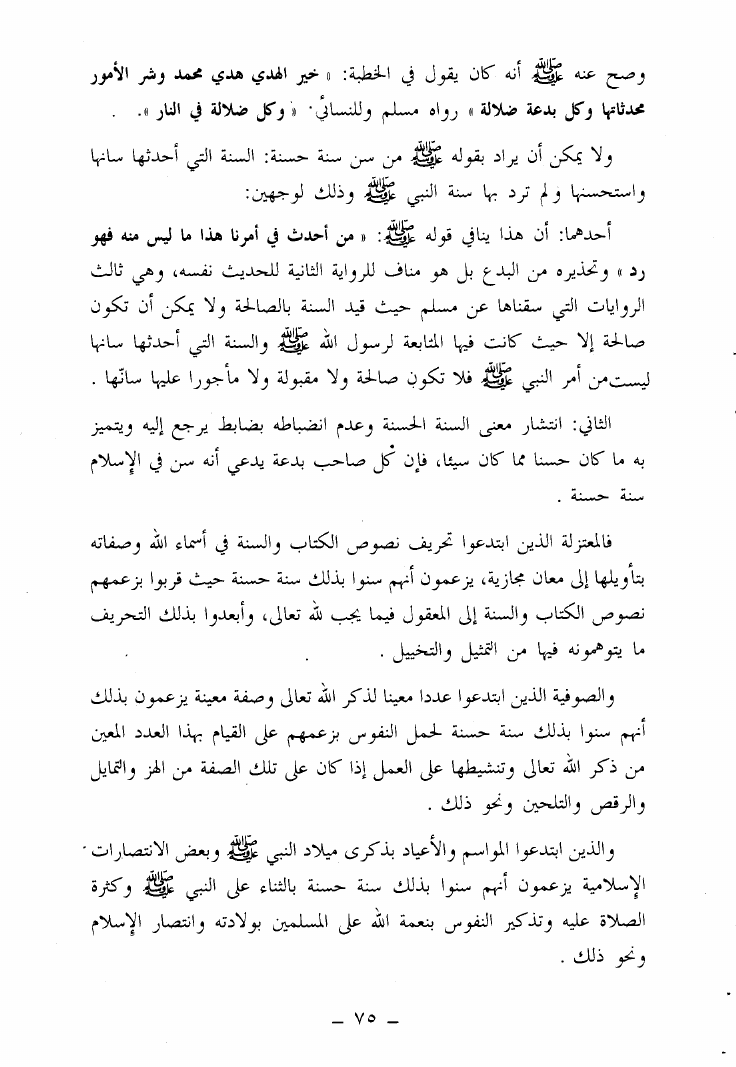 وصح عنه ﷺ أنه كان يقول في الخطبة: « خير الهدي هدي محمد وشر الأمور
محدثاتها وكل بدعة ضلالة » رواه مسلم وللنسائي· « وكل ضلالة في النار ».
ولا يمكن أن يراد بقوله ﷺ من سن سنة حسنة: السنة التي أحدثها سانها
واستحسنها ولم ترد بها سنة النبي ﷺ وذلك لوجهين:
أحدهما: أن هذا ينافي قوله ﷺ: « من أحدث في أمرنا هذا ما ليس منه فهو
رد » وتحذيره من البدع بل هو مناف للرواية الثانية للحديث نفسه، وهي ثالث
الروايات التي سقناها عن مسلم حيث قيد السنة بالصالحة ولا يمكن أن تكون
صالحة إلا حيث كانت فيها المتابعة لرسول الله ﷺ والسنة التي أحدثها سانها
ليست من أمر النبي ﷺ فلا تكون صالحة ولا مقبولة ولا مأجورا عليها سانّها .
الثاني: انتشار معنى السنة الحسنة وعدم انضباطه بضابط يرجع إليه ويتميز
به ما كان حسنا مما كان سيئا، فإن كل صاحب بدعة يدعي أنه سن في الإسلام
سنة حسنة .
فالمعتزلة الذين ابتدعوا تحريف نصوص الكتاب والسنة في أسماء الله وصفاته
بتأويلها إلى معان مجازية، يزعمون أنهم سنوا بذلك سنة حسنة حيث قربوا بزعمهم
نصوص الكتاب والسنة إلى المعقول فيما يجب لله تعالى، وأبعدوا بذلك التحريف
ما يتوهمونه فيها من التمثيل والتخييل .
والصوفية الذين ابتدعوا عددا معينا لذكر الله تعالى وصفة معينة يزعمون بذلك
أنهم سنوا بذلك سنة حسنة لحمل النفوس بزعمهم على القيام بهذا العدد المعين
من ذكر الله تعالى وتنشيطها على العمل إذا كان على تلك الصفة من الهز والتمايل
والرقص والتلحين ونحو ذلك .
والذين ابتدعوا المواسم والأعياد بذكرى ميلاد النبي ﷺ وبعض الانتصارات
الإسلامية يزعمون أنهم سنوا بذلك سنة حسنة بالثناء على النبي ﷺ وكثرة
الصلاة عليه وتذكير النفوس بنعمة الله على المسلمين بولادته وانتصار الإسلام
ونحو ذلك .
– ٧٥ –